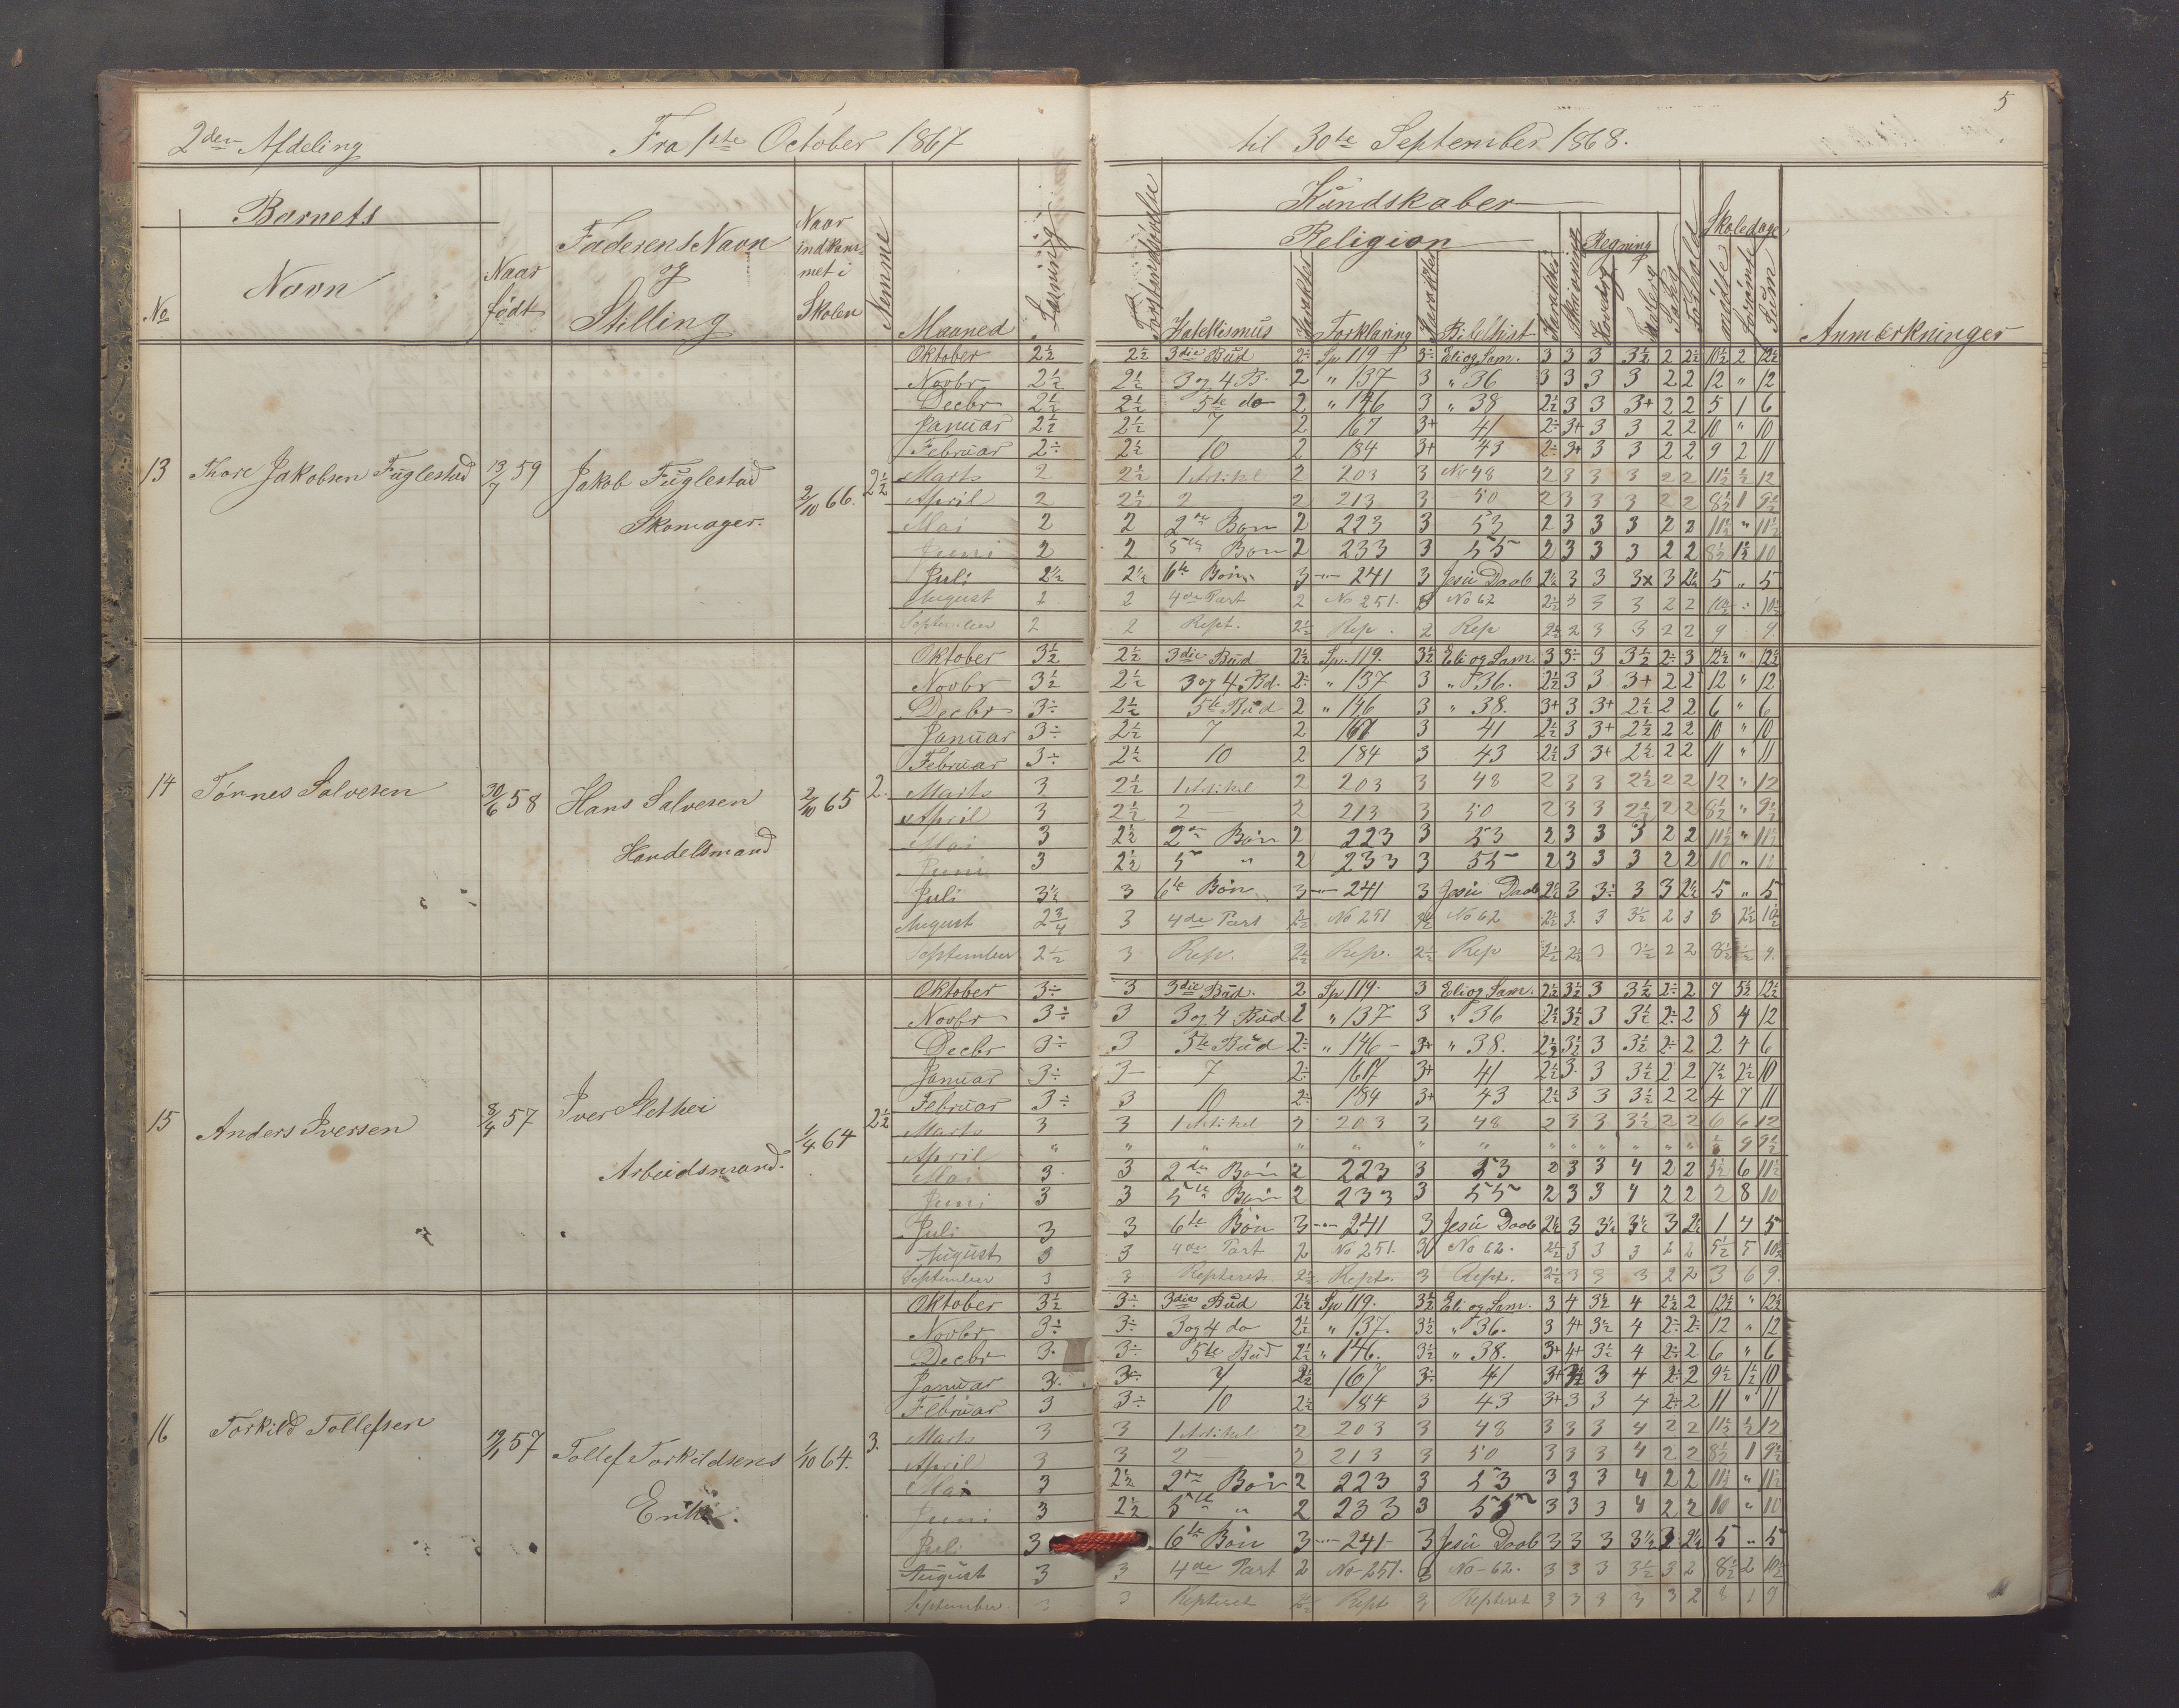 5
2den Afdeling Fra 1ste October 1867 til 30te September 1868.
Barnets
No Navn Naar født Faderens Navn og Stilling Naar indkommet i Skolen Nemme Maaned Læsning
Kundskaber
Religion Regning Skoledage
Forstandsøvelse Katekismus Karakter Forklaring Karakter Bibelhist. Karakter Skrivning Hoved Tavle Sang Forhold mødte forsømte Sum Anmærkninger
13 Thore Jakobsen Fuglestad 13/7 59 Jakob Fuglestad Skomager. 2/10 66. 2½
Oktober 2½ 2½ 3die Bud 2÷ Sp. 119 3÷ Eli og Sam. 3 3 3 3½ 2 2½ 10½ 2 12½
Novbr 2½ 2½ 3 og 4 B. 2 " 137 3 " 36 3 3 3 3 2 2 12 " 12
Decbr 2½ 2½ 5te do 2 " 146 3 " 38 2½ 3 3 3+ 2 2 5 1 6
Januar 2½ 2½ 7 2 167 3+ 41 2÷ 3+ 3 3 2 2 10 " 10
Februar 2÷ 2½ 10 2 184 3+ 43 2÷ 3+ 3 3 2 2 9 2 11
Marts 2 2½ 1 Artikel 2 203 3 No 48 2 3 3 3 2 2 11½ ½ 12
April 2 2½ 2 2 213 3 50 2 3 3 3 2 2 8½ 1 9½
Mai 2 2 2den Bøn 2 223 3 53 2 3 3 3 2 2 11½ " 11½
Juni 2 2 5te Bøn 2 233 3 55 2 3 3 3 2 2 8½ 1½ 10
Juli 2½ 2½ 6te Bøn 3 241 3 Jesu Daab 2½ 3 3 3x 3 2½ 5 " 5
August 2 2 4de Part 2 No 251. 3 No 62 2½ 3 3 3 2 2 10½ " 10½
September 2 2 Rept. 2½ Rep. 2 Rep 2½ 2 3 3 2 2 9 9
14 Tørnes Salvesen 30/6 58 Hans Salvesen Handelsmand 2/10 65 2.
Oktober 3½ 2½ 3die Bud 2½ Sp. 119. 3½ Eli og Sam. 3 3÷ 3 3½ 2÷ 3 12½ " 12½
Novbr 3½ 2½ 3 og 4 Bd. 2÷ " 137 3 " 36. 2½ 3 3 3+ 2 2 12 " 12
Decbr 3÷ 2½ 5te Bud 2 " 146 3 " 38. 3+ 3 3+ 2½ 2 2 6 " 6
Januar 3÷ 2½ 7 2 167 3 41 2½ 3 3+ 2½ 2 2 10 " 10
Februar 3÷ 2½ 10 2 184 3 43 2½ 3 3+ 2½ 2 2 11 " 11
Marts 3 2½ 1 Artikel 2 203 3 48 2 3 3 2½ 2 2 12 " 12
April 3 2½ 2 2 213 3 50 2 3 3 2½ 2 2 8½ " 9½
Mai 3 2½ 2den Bøn 2 223 3 53 2 3 3 3 2 2 11½ " 11½
Juni 3 2½ 5 " 2 233 3 55 2 3 3 3 2 2 10 " 10
Juli 3½ 3 6te Bøn 3 241 3 Jesu Daab 2½ 3 3÷ 3 3 2½ 5 " 5
August 2¾ 3 4de Part 2½ No 251 3½ No 62 2½ 3 3 3½ 2 3 8 2½ 10½
September 2½ 3 Rep. 2½ Rep. 2½ Rep 2½ 2½ 3 3½ 2 2 8½ ½ 9.
15 Anders Iversen 8/4 57 Iver Slethei Arbeidsmand. 1/4 64 2½
Oktober 3÷ 3 3die Bud. 2 Sp 119. 3 Eli og Sam. 2½ 3½ 3 3½ 2÷ 2 7 5½ 12½
Novbr 3÷ 3 3 og 4 Bud 2 " 137 3 " 36 2½ 3½ 3 3½ 2÷ 2 8 4 12
Decbr 3÷ 3 5te Bud 2÷ " 146 3+ " 38. 2½ 3½ 3 3½ 2÷ 2 2 4 6
Januar 3÷ 3 7 2÷ 167 3+ 41 2½ 3 3 3½ 2 2 7½ 2½ 10
Februar 3÷ 3 10 2÷ 184 3+ 43 2½ 3 3 3½ 2 2 4 7 11
Marts 3 3 1 Artikel 2 203 3 48 2 3 3 3½ 2 2 6 6 12
April " " " " " " " " " " " " " ½ 9 9½
Mai 3 3 2den Bøn 2 223 3 53 2 3 3 4 2 2 5½ 6 11½
Juni 3 3 5te Bøn 2 233 3 55 2 3 3 4 2 2 2 8 10
Juli 3 3 6te Bøn 3 241 3 Jesu Daab 2½ 3 3½ 3½ 3 2½ 1 4 5
August 3 3 4de Part 2 No 251. 3 No 62. 2½ 3 3 3 2 2 5½ 5 10½
September 3 3 Repteret 2½ Rept. 3 Rept. 2½ 3 3 3 2 2 3 6 9.
16 Torkild Tollefsen 57 Tollef Torkildsens Enke. 1/10 64. 3.
Oktober 3½ 3÷ 3die Bud 2½ Sp 119. 3½ Eli og Sam. 3 4 3½ 4 2½ 2 12½ " 12½
Novbr 3÷ 3÷ 3 og 4 do 2½ " 137. 3½ " 36. 3 4+ 3½ 4 2÷ 2÷ 12 " 12
Decbr 3 3÷ 5te Bud 2½ " 146. 3½ " 38. 3+ 4+ 3½ 4 2÷ 2 6 " 6
Januar 3 3÷ 7 2½ 167 3÷ 41 3+ 3½ 3 4 2÷ 2 9½ ½ 10
Februar 3 3÷ 10 2½ 184 3 43 3+ 3 3 4 2÷ 2 11 " 11
Marts 3 3 1 Artikel 2 203 3 48 3 3 3 4 2 2 11½ ½ 12
April 3 3 2 2 213 3 50 3 3 3 4 2 2 8½ 1 9½
Mai 3 2½ 2den Bøn 2 223 3 53 3 3 3 4 2 2 11½ " 11½
Juni 3 2½ 5te " 2 233 3 55 3 3 3 4 2 2 10 " 10
Juli 3 6te Bøn 3 241 3 Jesu Daab 3 3 3 3½ 3 2½ 5 " 5
August 3 3 4de Part 2 No 251. 3 No 62. 3 3 3 3½ 3 2 8½ 2 10½
September 3 3 Repteret 2½ Rept 3 Repteret 3 3 3 3 3 2 8 1 9